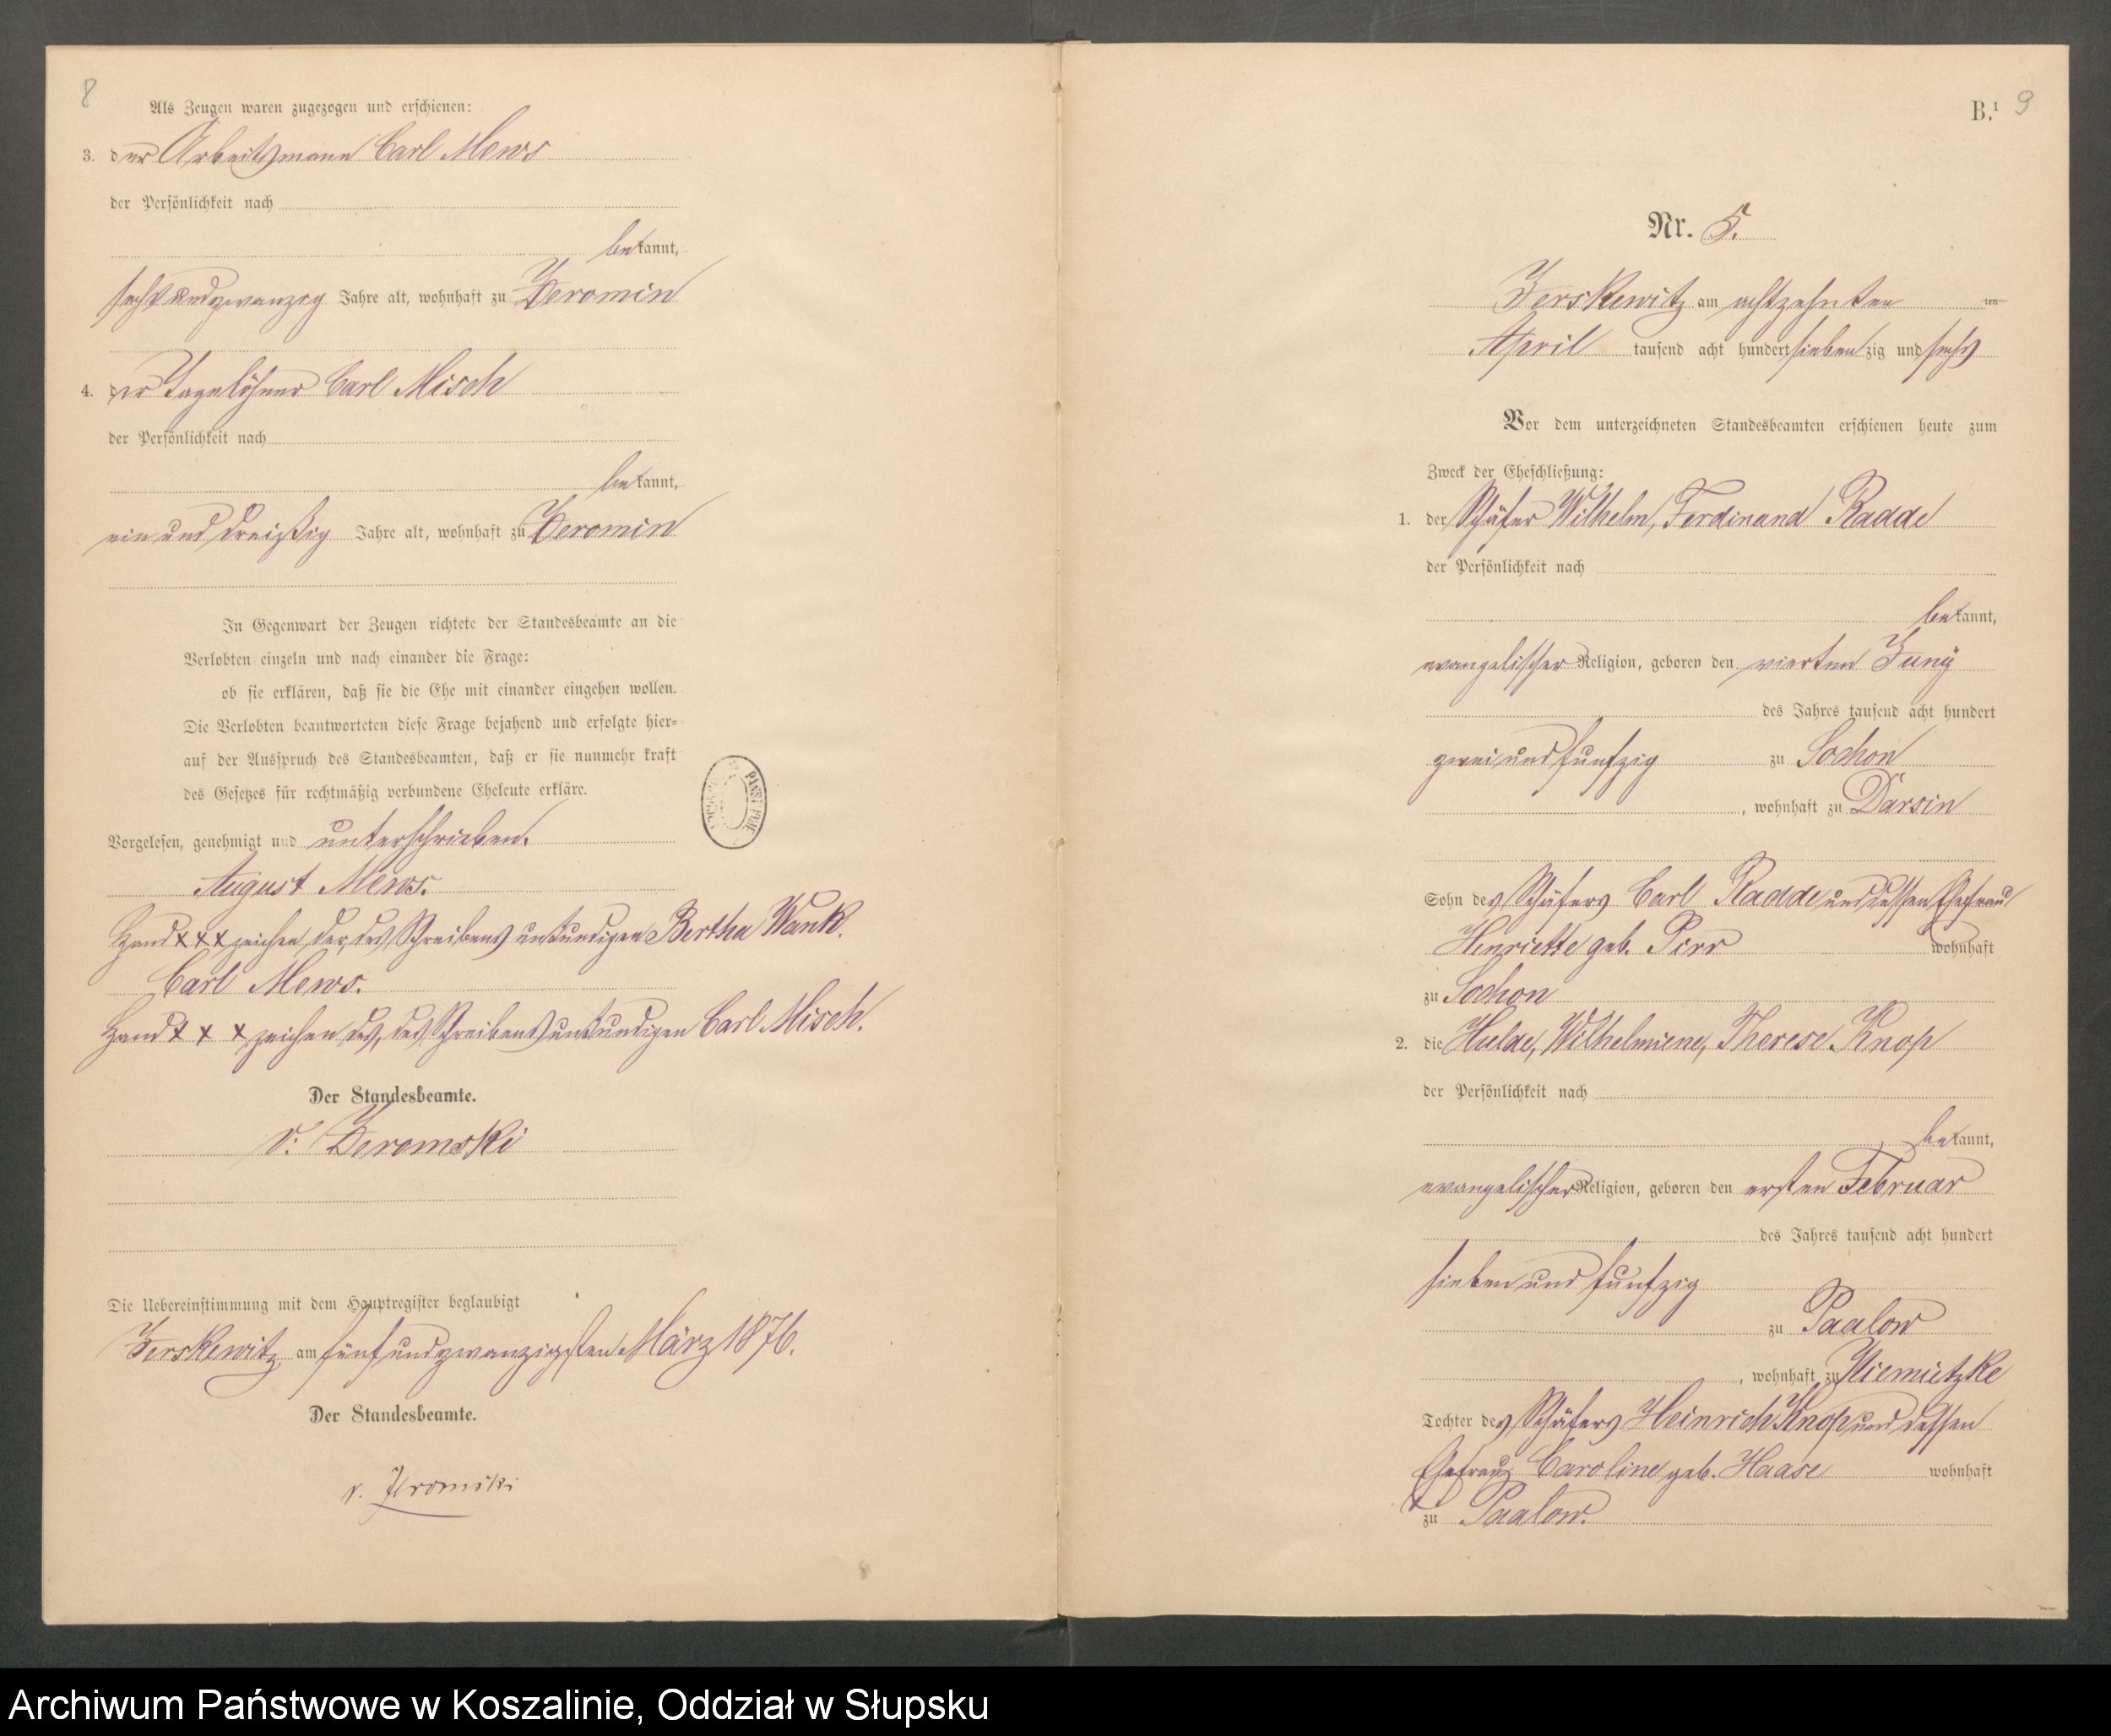 8
Als Zeugen waren zugezogen und erschienen:
3. der Arbeitsmann Carl Mews
der Persönlichkeit nach
bekannt,
sechsundzwanzig Jahre alt, wohnhaft zu Jeromin
4. der Tagelöhner Carl Misch
der Persönlichkeit nach
bekannt,
ein und dreißig Jahre alt, wohnhaft zu Jeromin
In Gegenwart der Zeugen richtete der Standesbeamte an die
Verlobten einzeln und nach einander die Frage:
ob sie erklären, daß sie die Ehe mit einander eingehen wollen.
Die Verlobten beantworteten diese Frage bejahend und erfolgte hier-
auf der Ausspruch des Standesbeamten, daß er sie nunmehr kraft
des Gesetzes für rechtmäßig verbundene Eheleute erkläre.
Vorgelesen, genehmigt und unterschrieben.
August Mews.
Hand xxx zeichen der, des Schreibens unkundigen Bertha Wank.
Carl Mews.
Hand x x x zeichen des, des Schreibens unkundigen Carl Misch.
Der Standesbeamte.
v. Jeromski
Die Uebereinstimmung mit dem Hauptregister beglaubigt
Jerskewitz am fünfundzwanzigsten März 1876.
Der Standesbeamte.
v. Jeromski
B.¹ 9
Nr. 5.
Jerskewitz am achtzehnten ten
April tausend acht hundert siebenzig und sechs
Vor dem unterzeichneten Standesbeamten erschienen heute zum
Zweck der Eheschließung:
1. der Schäfer Wilhelm, Ferdinand Radde
der Persönlichkeit nach
bekannt,
evangelischer Religion, geboren den vierten Juny
des Jahres tausend acht hundert
zwei und funfzig zu Sochon
, wohnhaft zu Darsin
Sohn des Schäfers Carl Radde und dessen Ehefrau
Henriette geb. Pirr wohnhaft
zu Sochon
2. die Hulde, Wilhelmiene, Therese Knop
der Persönlichkeit nach
bekannt,
evangelischer Religion, geboren den ersten Februar
des Jahres tausend acht hundert
sieben und funfzig
zu Paalow
, wohnhaft zu Niemietzke
Tochter des Schäfers Heinrich Knop und dessen
Ehefrau Caroline geb. Haase wohnhaft
zu Paalow.
Archiwum Państwowe w Koszalinie, Oddział w Słupsku